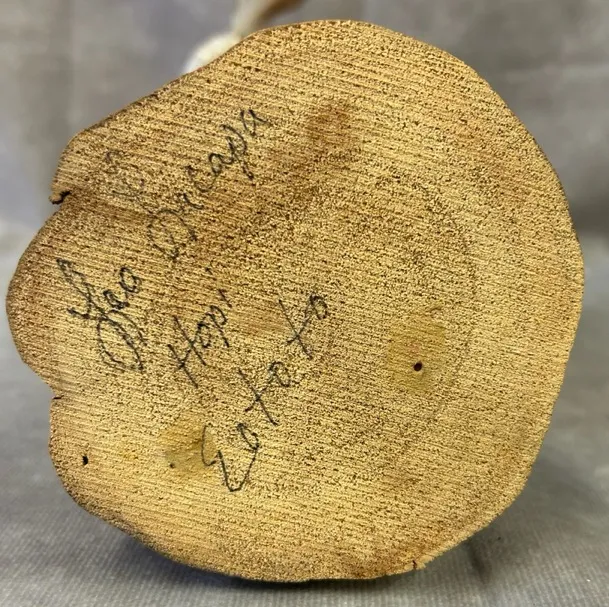 Leo Lacapa
Hopi
Eototo